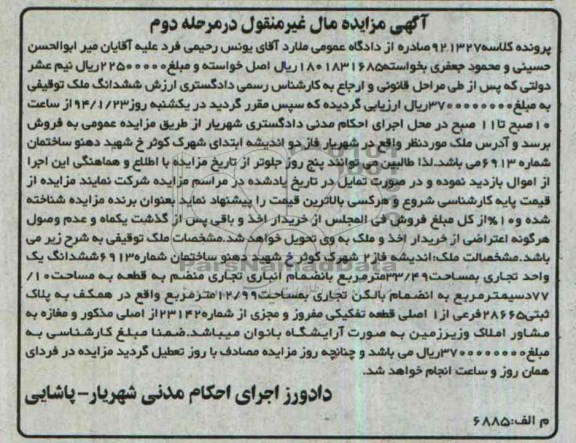 آگهی مزایده مال غیرمنقول درمرحله دوم
پرونده کلاسه۹۲.۱۳۲۷صادره از دادگاه عمومی ملارد آقای یونس رحیمی فرد علیه آقایان میر ابوالحسن
حسینی و محمود جعفری بخواسته۱۸۰۱۸۳۱۶۸۵ریال اصل خواسته و مبلغ۲۲۵۰۰۰۰۰ریال نیم عشر
دولتی که پس از طی مراحل قانونی و ارجاع به کارشناس رسمی دادگستری ارزش ششدانگ ملک توقیفی
به مبلغ۳۷۰۰۰۰۰۰۰۰ریال ارزیابی گردیده که سپس مقرر گردید در یکشنبه روز۹۴/۱/۲۳از ساعت
۱۰صبح تا۱۱ صبح در محل اجرای احکام مدنی دادگستری شهریار از طریق مزایده عمومی به فروش
برسد و آدرس ملک موردنظر واقع در شهریار فاز دو اندیشه ابتدای شهرک کوثر خ شهید دهنو ساختمان
شماره ۶۹۱۳می باشد.لذا طالبین می توانند پنج روز جلوتر از تاریخ مزایده با اطلاع و هماهنگی این اجرا
از اموال بازدید نموده و در صورت تمایل در تاریخ یادشده در مراسم مزایده شرکت نمایند مزایده از
قیمت پایه کارشناسی شروع و هرکسی بالاترین قیمت را پیشنهاد نماید بعنوان برنده مزایده شناخته
شده و۱۰%از کل مبلغ فروش فی المجلس از خریدار اخذ و باقی پس از گذشت یکماه و عدم وصول
هرگونه اعتراضی از خریدار اخذ و ملک به وی تحویل خواهد شد.مشخصات ملک توقیفی به شرح زیر می
باشد.مشخصالت ملک:اندیشه فاز۲ شهرک کوثر خ شهید دهنو ساختمان شماره۶۹۱۳ششدانگ یک
واحد تجاری بمساحت۳۳/۴۹مترمربع بانضمام انباری تجاری منضم به قطعه به مساحت۱۰/
۷۷دسیمترمربع به انضمام بالکن تجاری بمساحت۱۲/۹۹مترمربع واقع در همکف به پلاک
ثبتی۲۸۶۶۵فرعی از۱ اصلی قطعه تفکیکی مفروز و مجزی از شماره۲۳۱۴۲از اصلی مذکور و مغازه به
مشاور املاک وزیرزمین به صورت آرایشگاه بانوان میباشد.ضمنا مبلغ کارشناسی به
مبلغ۳۷۰۰۰۰۰۰۰۰ریال می باشد و چنانچه روز مزایده مصادف با روز تعطیل گردید مزایده در فردای
همان روز و ساعت انجام خواهد شد.
دادورز اجرای احکام مدنی شهریار-پاشایی
م الف:۶۸۸۵